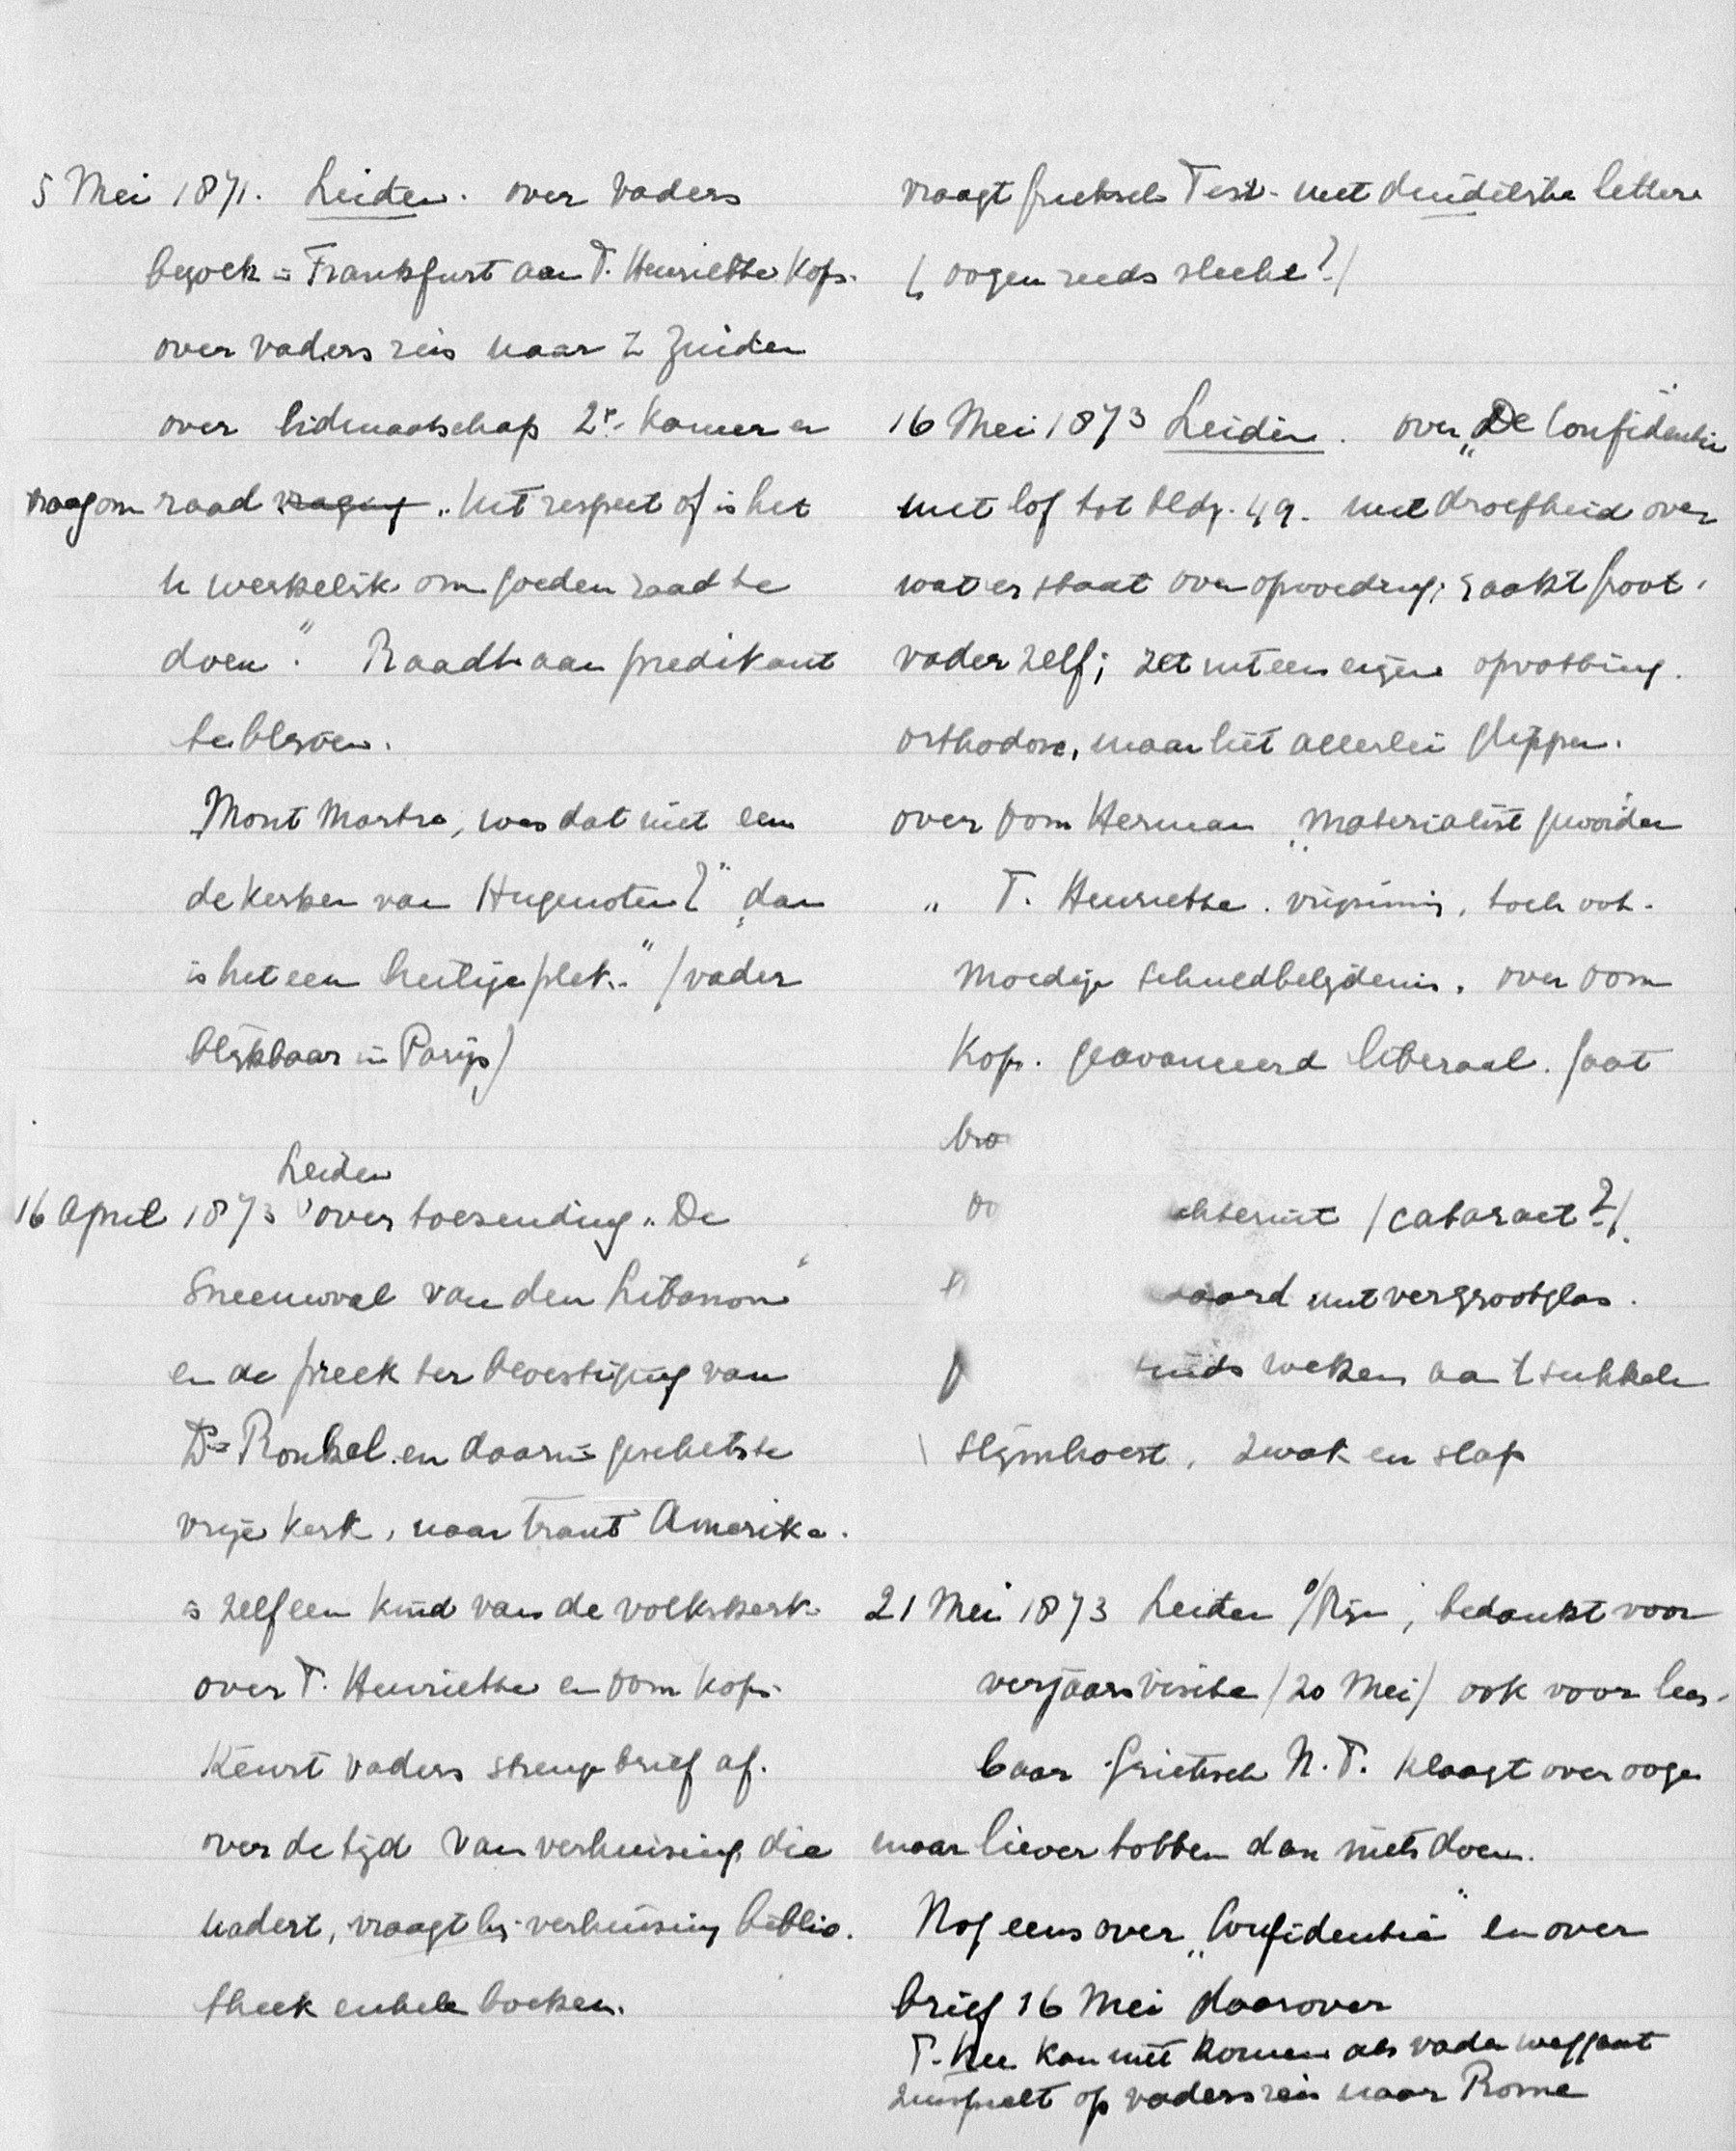 5 Mei 1871. Leiden. over vaders
bezoek in Frankfurt aan T. Henriette Kops.
over vaders reis naar 't Zuiden
over lidmaatschap 2e Kamer en
vraag om raad vraging „Met respect of is het
U werkelijk om goeden raad te
doen". Raadt aan predikant
te blijven.
Mont Martre, was dat niet een
de kerken van Hugenoten?" „dan
is het een heilige plek." (vader
blijkbaar in Parijs)
Leiden
16 April 1873 over toezending „De
Sneeuwval van den Libanon"
en de preek ter bevestiging van
Ds Ronkel en daarin geschetste
vrije kerk, naar trant Amerika.
is zelf een kind van de volkskerk
over T. Henriette en Oom Kops.
Keurt vaders strenge brief af.
over de tijd van verhuising die
nadert, vraagt bij verhuising biblio-
theek enkele boeken.
vraagt Grieksch Test. met duidelijke letters
(oogen reeds slecht?)
16 Mei 1873 Leiden. over „De Confidentie"
met lof tot bldz. 49. met droefheid over
wat er staat over opvoeding; raakt groot-
vader zelf; zet uiteen eigen opvatting.
orthodox, maar liet allerlei glippen.
over Oom Herman „materialist geworden
" T. Henriette. vrijzinnig, toch oot-
moedige schuldbelijdenis. over oom
Kops. geavanceerd liberaal. gaat
bro
oo chteruit (cataract?).
aard met vergrootglas.
sinds weken aan 't sukkelen
slijmhoest, zwak en slap
21 Mei 1873 Leiden o/Rijn, bedankt voor
verjaarsvisite (20 Mei) ook voor lees-
baar Grieksch N.T. klaagt over oogen
maar liever tobben dan niets doen.
Nog eens over „Confidentie" en over
brief 16 Mei daarover
T. Hen kan niet komen als vader weggaat
zinspeelt op vaders reis naar Rome